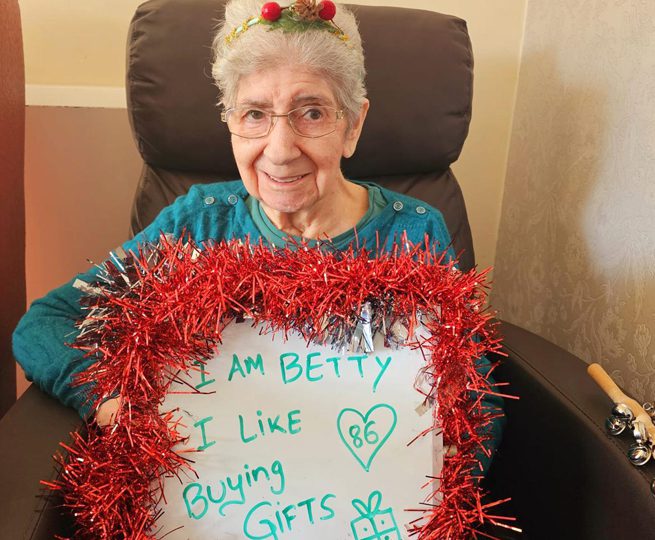 I AM BETTY
I LIKE
86
Buying
GIFTS